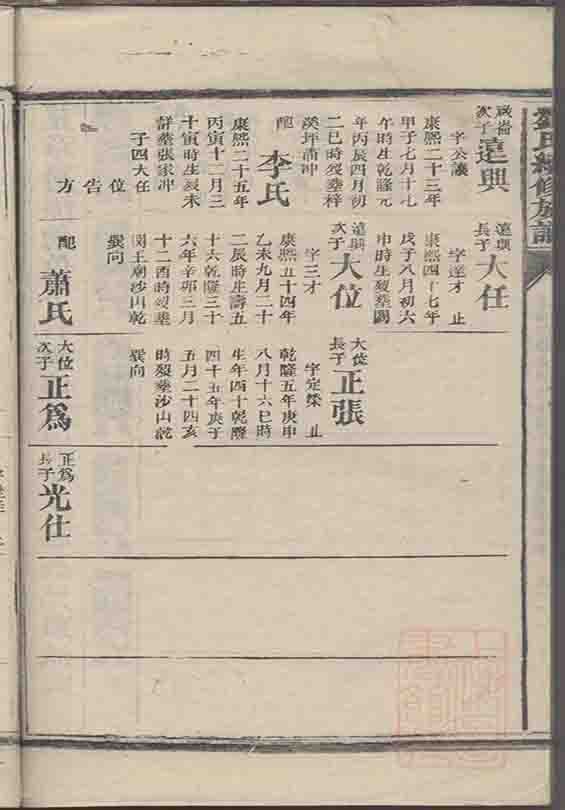 氏續修族譜
次子遠興
字公議
康熙二十三年
甲子七月十七
午時生乾隆元
年丙辰四月初
二巳時歿塟梓
溪坪蒲冲
配李氏
康熙二十五年
丙寅十二月三
十寅時生歿未
詳塟張家冲
子四大任
位
告
方
遠興長子大任
字達才 止
康熙四十七年
戊子八月初六
申時生歿塟關
遠興次子大位
字三才
康熙五十四年
乙未九月二十
二辰時生壽五
十六乾隆三十
六年辛卯三月
十二酉時歿塟
関王廟沙山乾
巽向
配蕭氏
大位長子正張
字定榮 止
乾隆五年庚申
八月十六巳時
生年四十乾隆
四十五年庚子
五月二十四亥
時歿塟沙山乾
巽向
大位次子正爲
正爲長子光仕